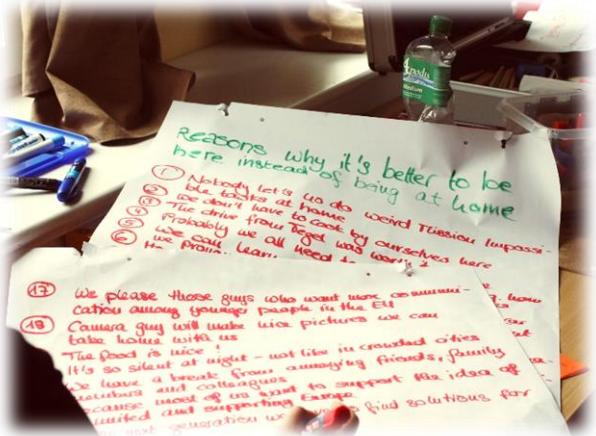 Reasons why it's better to be
here instead of being at home
1 Nobody let's us do weird Mission Impossi-
ble tasks at home
2 We don't have to cook by ourselves here
3 The drive from Tegel was
4 Probably we all need
5 We can learn
6
17 We please those guys who want more communi-
cation among younger people in the EU
18 Camera guy will make nice pictures we can
take home with us
The food is nice!
It's so silent at night - not like in crowded cities
We have a break from annoying friends, family
members and colleagues
because most of us want to support the idea of
united and supporting Europe
next generation we find solutions for